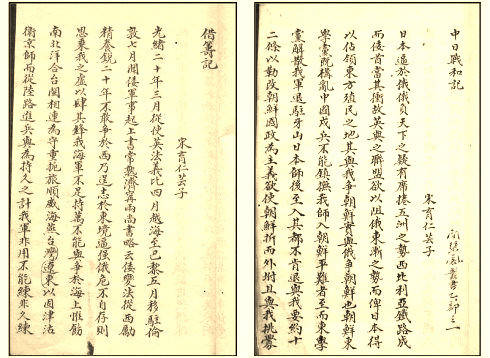 中日戰和記
叢書乙部之一
宋育仁芸子
日本逼於俄俄負天下之疑有席捲五洲之勢西比利亞鐵路成
而後首當其衝故英與之聯盟欲以阻俄東漸之勢而俾日本得
以佔領東方殖民之地其與我爭朝鮮實與俄爭朝鮮也朝鮮東
學黨既構亂中國戍兵不能鎮撫我師入朝鮮平難者至而東學
黨解散我軍退駐牙山日本師後至入其都不肯退與我要約十
二條以勸改朝鮮國政為主義欲使朝鮮折而外附且與我挑釁
借籌記
宋育仁芸子
光緒二十年三月從使英法義比四月越海至巴黎五月移駐倫
敦七月聞倭軍事起上書常熟濟甯兩尚書略云倭變法從西勵
精養銳二十年不敢爭於西乃逞志於東境逼強俄危不自存則
思乘我之虛以肆其鋒我海軍不足恃萬不能與爭於海上惟飭
南北洋合台閩相連為守重扼旅順威海燕台灣遼東以固津沽
衛京師而從陸路進兵與為持久之計我軍非用不能練非久練